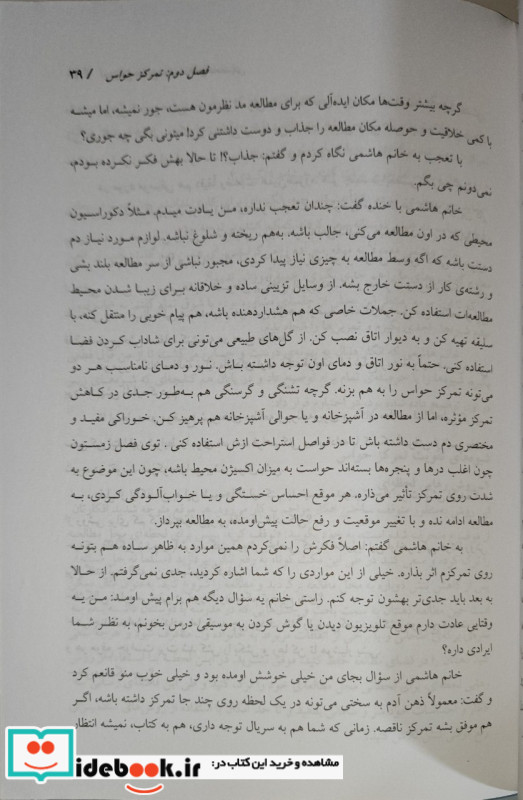 فصل دوم: تمرکز حواس / ۳۹
گرچه بیشتر وقت‌ها مکان ایده‌آلی که برای مطالعه مد نظرمون هست، جور نمیشه، اما میشه
با کمی خلاقیت و حوصله مکان مطالعه را جذاب و دوست داشتنی کرد! میتونی بگی چه جوری؟
با تعجب به خانم هاشمی نگاه کردم و گفتم: جذاب؟! تا حالا بهش فکر نکرده بودم،
نمی‌دونم چی بگم.
خانم هاشمی با خنده گفت: چندان تعجب نداره، من یادت میدم. مثلاً دکوراسیون
محیطی که در اون مطالعه می‌کنی، جالب باشه. به‌هم ریخته و شلوغ نباشه. لوازم مورد نیاز دم
دستت باشه که اگه وسط مطالعه به چیزی نیاز پیدا کردی، مجبور نباشی از سر مطالعه بلند بشی
و رشته‌ی کار از دستت خارج بشه. از وسایل تزیینی ساده و خلاقانه برای زیبا شدن محیط
مطالعه‌ات استفاده کن. جملات خاصی که هم هشداردهنده باشه، هم پیام خوبی را منتقل کنه، با
سلیقه تهیه کن و به دیوار اتاق نصب کن. از گل‌های طبیعی می‌تونی برای شاداب کردن فضا
استفاده کنی. حتماً به نور اتاق و دمای اون توجه داشته باش. نور و دمای نامناسب هر دو
می‌تونه تمرکز حواس را به هم بزنه. گرچه تشنگی و گرسنگی هم به‌طور جدی در کاهش
تمرکز مؤثره، اما از مطالعه در آشپزخانه و یا حوالی آشپزخانه هم پرهیز کن. خوراکی مفید و
مختصری دم دست داشته باش تا در فواصل استراحت ازش استفاده کنی . توی فصل زمستون
چون اغلب درها و پنجره‌ها بسته‌اند حواست به میزان اکسیژن محیط باشه، چون این موضوع به
شدت روی تمرکز تأثیر می‌ذاره. هر موقع احساس خستگی و یا خواب‌آلودگی کردی، به
مطالعه ادامه نده و با تغییر موقعیت و رفع حالت پیش‌اومده، به مطالعه بپرداز.
به خانم هاشمی گفتم: اصلاً فکرش را نمی‌کردم همین موارد به ظاهر ساده هم بتونه
روی تمرکزم اثر بذاره. خیلی از این مواردی را که شما اشاره کردید، جدی نمی‌گرفتم. از حالا
به بعد باید جدی‌تر بهشون توجه کنم. راستی خانم یه سؤال دیگه هم برام پیش اومد: من یه
وقتایی عادت دارم موقع تلویزیون دیدن یا گوش کردن به موسیقی درس بخونم، به نظر شما
ایرادی داره؟
خانم هاشمی از سؤال بجای من خیلی خوشش اومده بود و خیلی خوب منو قانعم کرد
و گفت: معمولاً ذهن آدم به سختی می‌تونه در یک لحظه روی چند جا تمرکز داشته باشه، اگر
هم موفق بشه تمرکز ناقصه. زمانی که شما هم به سریال توجه داری، هم به کتاب، نمیشه انتظار
مشاهده و خرید این کتاب در:
idebook.ir